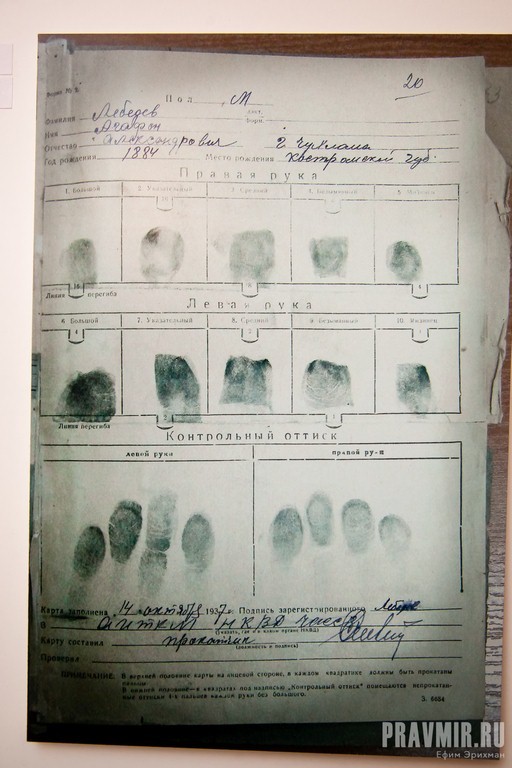 20
Форма № 2
Пол М
Фамилия Лебедев
Имя Агафон
Отчество Александрович г. Чухлома
Год рождения 1884 Место рождения Костромской губ.
Правая рука
1. Большой 2. Указательный 3. Средний 4. Безымянный 5. Мизинец
Линия перегиба
Левая рука
6. Большой 7. Указательный 8. Средний 9. Безымянный 10. Мизинец
Линия перегиба
Контрольный оттиск
левой руки правой руки
Карта заполнена 14 октября 1937 г. Подпись зарегистрированного
В НКВД
(указать, где и в каком органе НКВД)
Карту составил
(должность и подпись)
Проверил
ПРИМЕЧАНИЕ. В верхней половине карты на лицевой стороне, в каждом квадратике должны быть прокатаны
пальцы.
В нижней половине—в квадратах под надписью „Контрольный оттиск" помещаются непрокатан-
ные оттиски 4-х пальцев каждой руки без большого.
З. 6684
PRAVMIR.RU
Ефим Эрихман